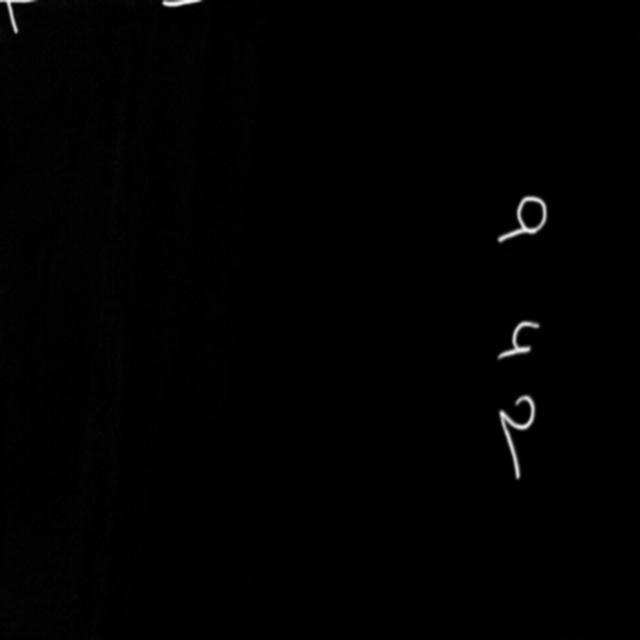 9 42